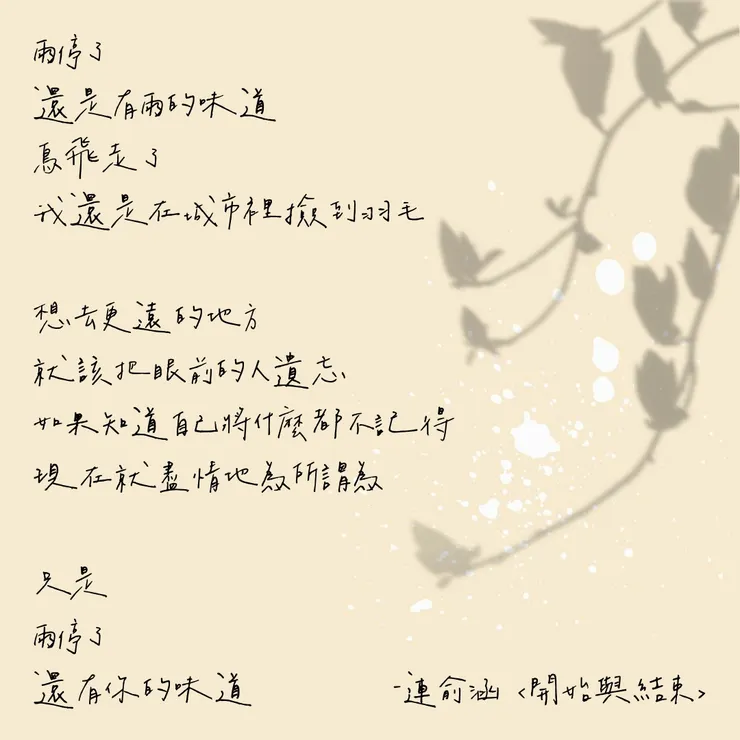 雨停了
還是有雨的味道
鳥飛走了
我還是在城市裡撿到羽毛
想去更遠的地方
就該把眼前的人遺忘
如果知道自己將什麼都不記得
現在就盡情地為所謂為
只是
雨停了
還有你的味道
-連俞涵<開始與結束>